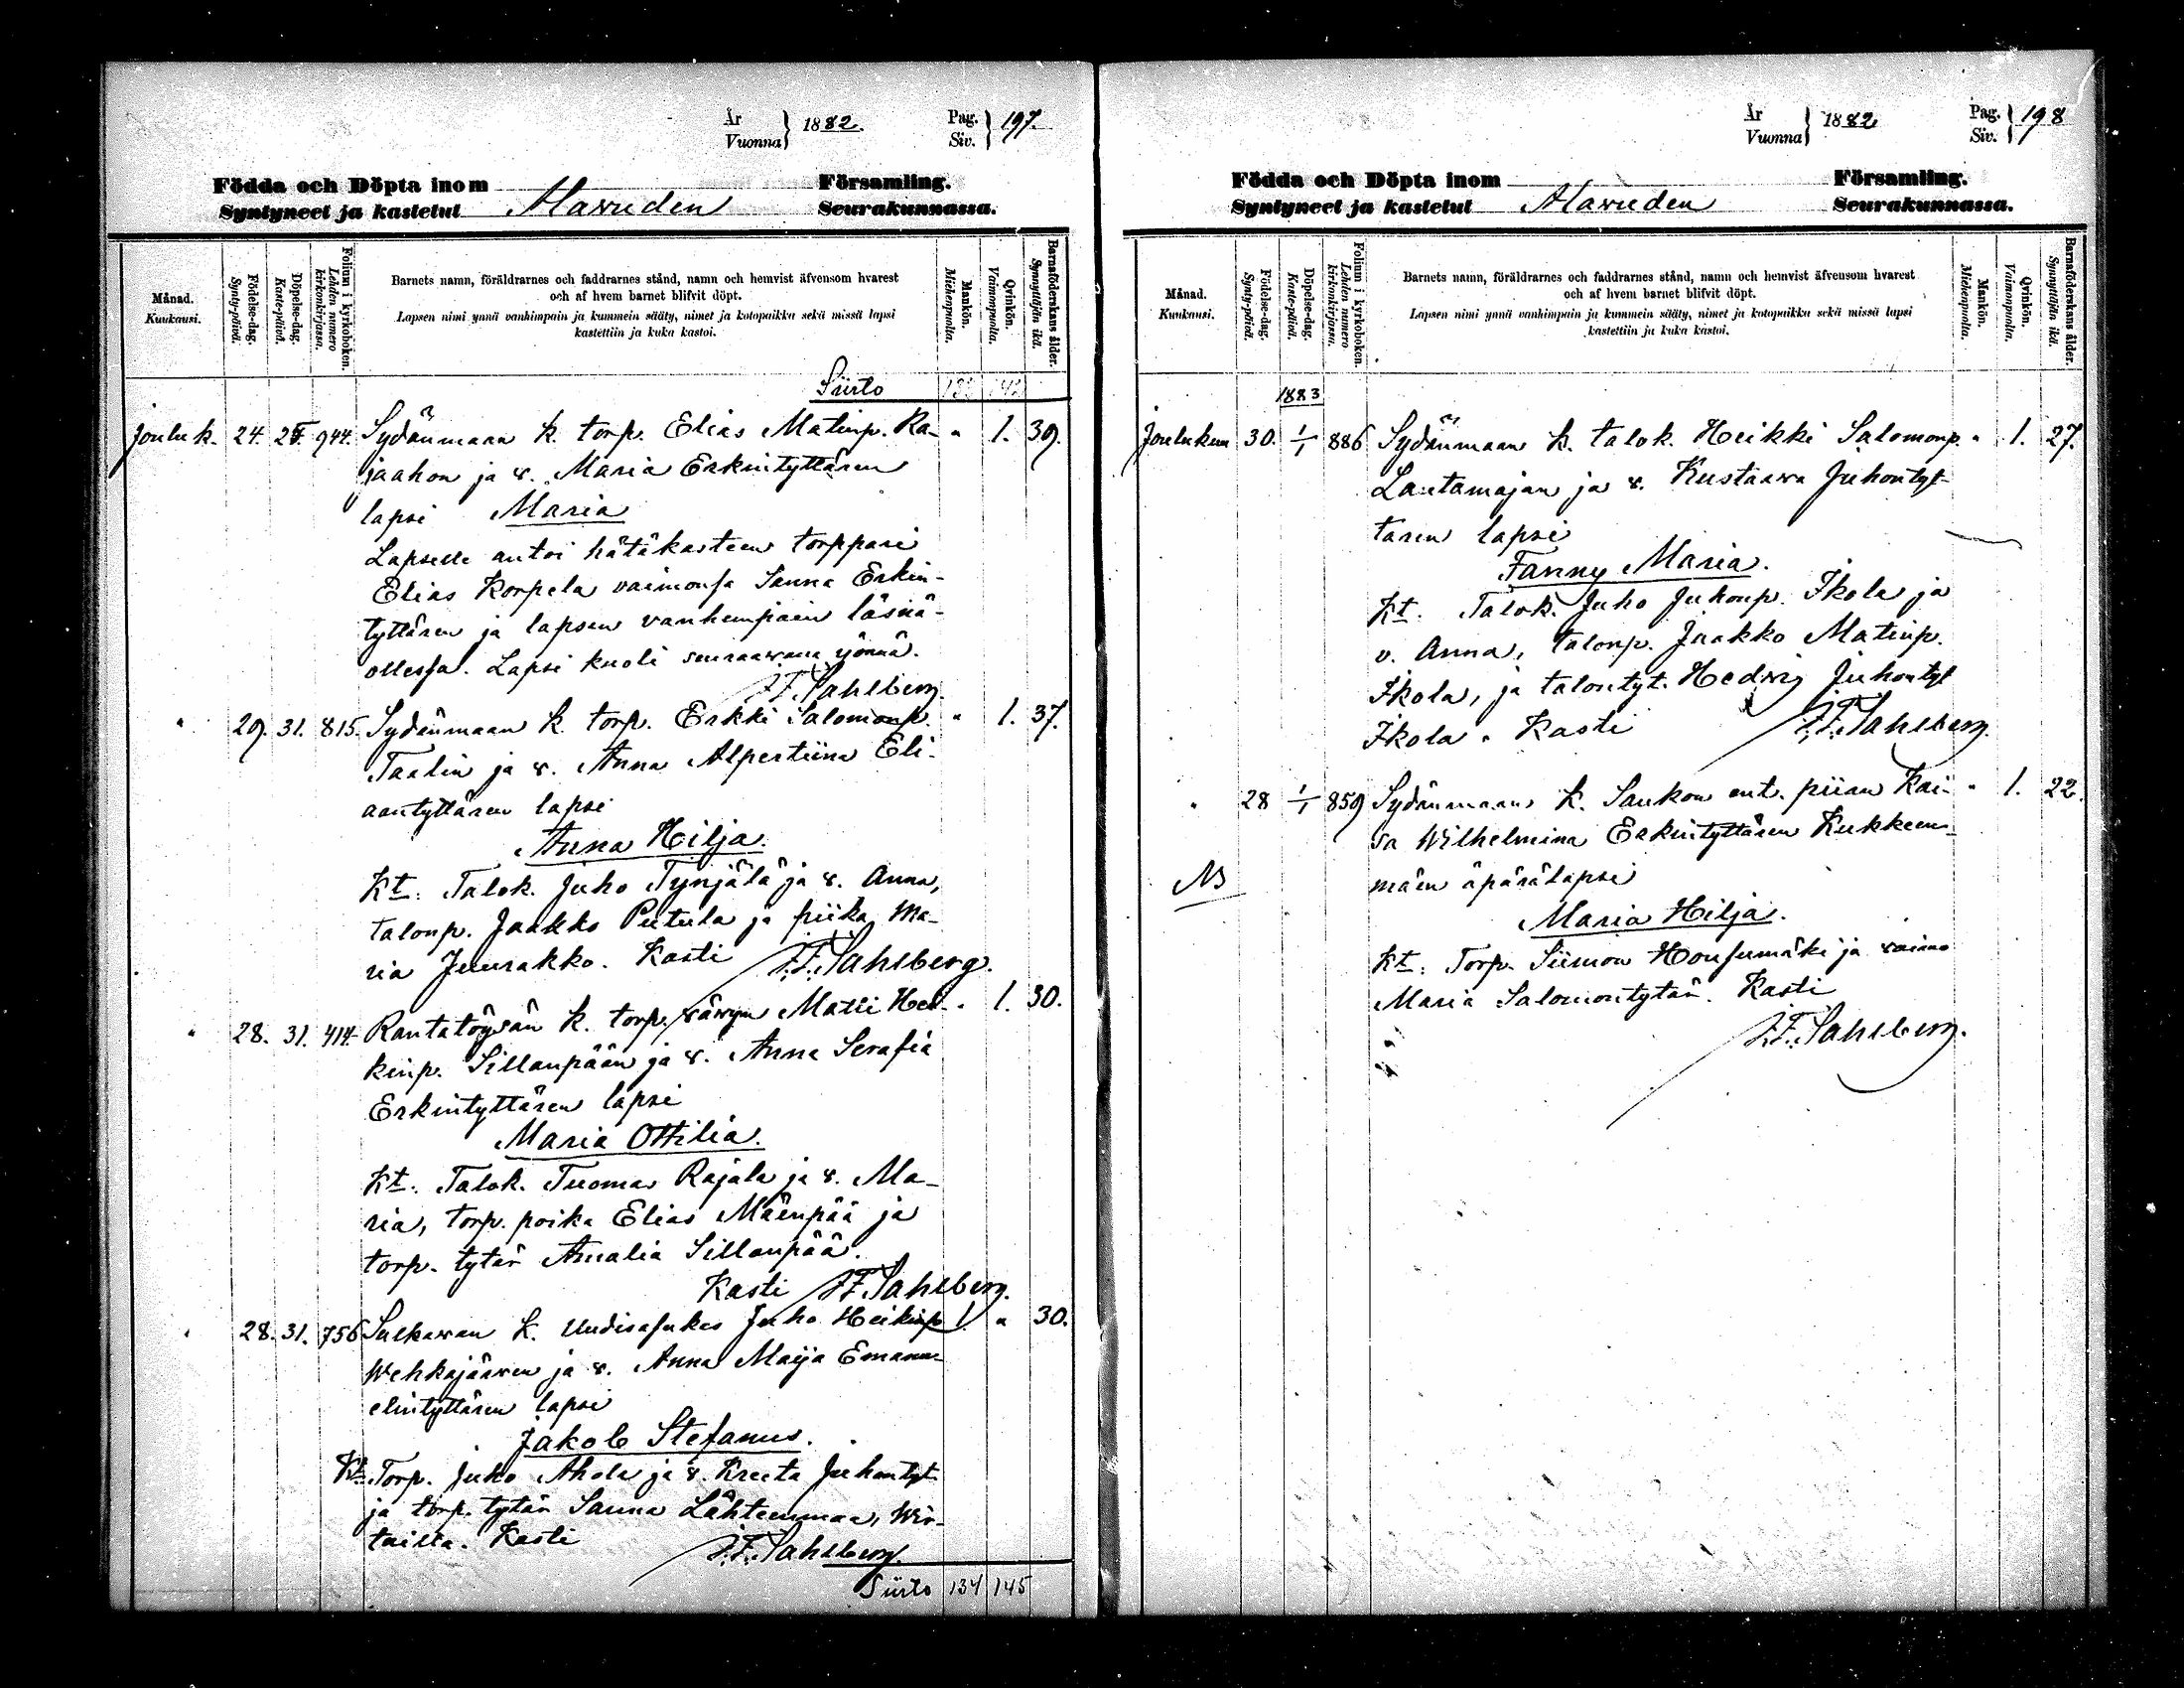 År
Vuonna } 1882.
Pag.
Siv. } 197.
Födda och Döpta inom Församling.
Syntyneet ja kastetut Alavuden Seurakunnassa.
Månad.
Kuukausi.
Födelse-dag.
Synty-päivä.
Döpelse-dag.
Kaste-päivä.
Folium i kyrkoboken.
Lehden numero
kirkonkirjassa.
Barnets namn, föräldrarnes och faddrarnes stånd, namn och hemvist äfvensom hvarest
och af hvem barnet blifvit döpt.
Lapsen nimi ynnä vanhimpain ja kummein sääty, nimet ja kotopaikka sekä missä lapsi
kastettiin ja kuka kastoi.
Mankön.
Miehenpuolta.
Qvinkön.
Vaimonpuolta.
Barnaföderskans ålder.
Synnyttäjän ikä.
Siirto
Jouluk. 24. 944. Sydänmaan k. torp. Elias Matinp. Ra- " 1. 39.
jaahon ja v. Maria Erkintyttären
lapsi Maria
Lapselle antoi hätäkasteen torppari
Elias Korpela vaimonsa Sanna Erkin-
tyttären ja lapsen vanhempain läsnä-
ollessa. Lapsi kuoli seuraavana yönnä.
J.F. Sahlberg.
" 29. 31. 815. Sydänmaan k. torp. Erkki Salomonp. " 1. 37.
Taalin ja v. Anna Alpertiina Eli-
aantyttären lapsi
Anna Hilja.
Kt: Talok. Juho Tynjälä ja v. Anna,
talonp. Jaakko Putula ja piika Ma-
ria Juurakko. Kasti J.F. Sahlberg.
" 28. 31. 414. Rantatöysän k. torp. vävyn Matti Hei- " 1. 30.
kinp. Sillanpään ja v. Anna Serafia
Erkintyttären lapsi
Maria Ottilia.
Kt: Talok. Tuomas Rajala ja v. Ma-
ria, torp. poika Elias Mäenpää ja
torp. tytär Amalia Sillanpää.
Kasti J.F. Sahlberg.
" 28. 31. 756 Sulkavan k. Uudisasukas Juho Heikinp. 1. " 30.
Wehkajärven ja v. Anna Maija Emanu-
elintyttären lapsi
Jakob Stefanus.
Kt: Torp. Juho Ahola ja v. Kreeta Juhontyt.
ja torp. tytär Sanna Lähteenmaa, Wir-
tailta. Kasti J.F. Sahlberg.
Siirto 134 145
År
Vuonna } 1882
Pag.
Siv. } 198
Födda och Döpta inom Församling.
Syntyneet ja kastetut Alavuden Seurakunnassa.
Månad.
Kuukausi.
Födelse-dag.
Synty-päivä.
Döpelse-dag.
Kaste-päivä.
Folium i kyrkoboken.
Lehden numero
kirkonkirjassa.
Barnets namn, föräldrarnes och faddrarnes stånd, namn och hemvist äfvensom hvarest
och af hvem barnet blifvit döpt.
Lapsen nimi ynnä vanhimpain ja kummein sääty, nimet ja kotopaikka sekä missä lapsi
kastettiin ja kuka kastoi.
Mankön.
Miehenpuolta.
Qvinkön.
Vaimonpuolta.
Barnaföderskans ålder.
Synnyttäjän ikä.
1883
Joulukun 30. 1/1 886 Sydänmaan k. talok. Heikki Salomonp. " 1. 27.
Lautamajan ja v. Kustaava Juhontyt-
tären lapsi
Fanny Maria.
Kt. Talok. Juho Juhonp. Ikola ja
v. Anna, talonp. Jaakko Matinp.
Ikola, ja talontyt. Hedvig Juhontyt
Ikola. Kasti J.F. Sahlberg.
" 28 1/1 859 Sydänmaan k. Saukon ent. piian Kai- " 1. 22.
sa Wilhelmina Erkintyttären Kukkeen-
mäen äpärälapsi
NB
Maria Hilja.
Kt: Torp. Siimon Honsumäki ja vaimo
Maria Salomontytär. Kasti
J.F. Sahlberg.